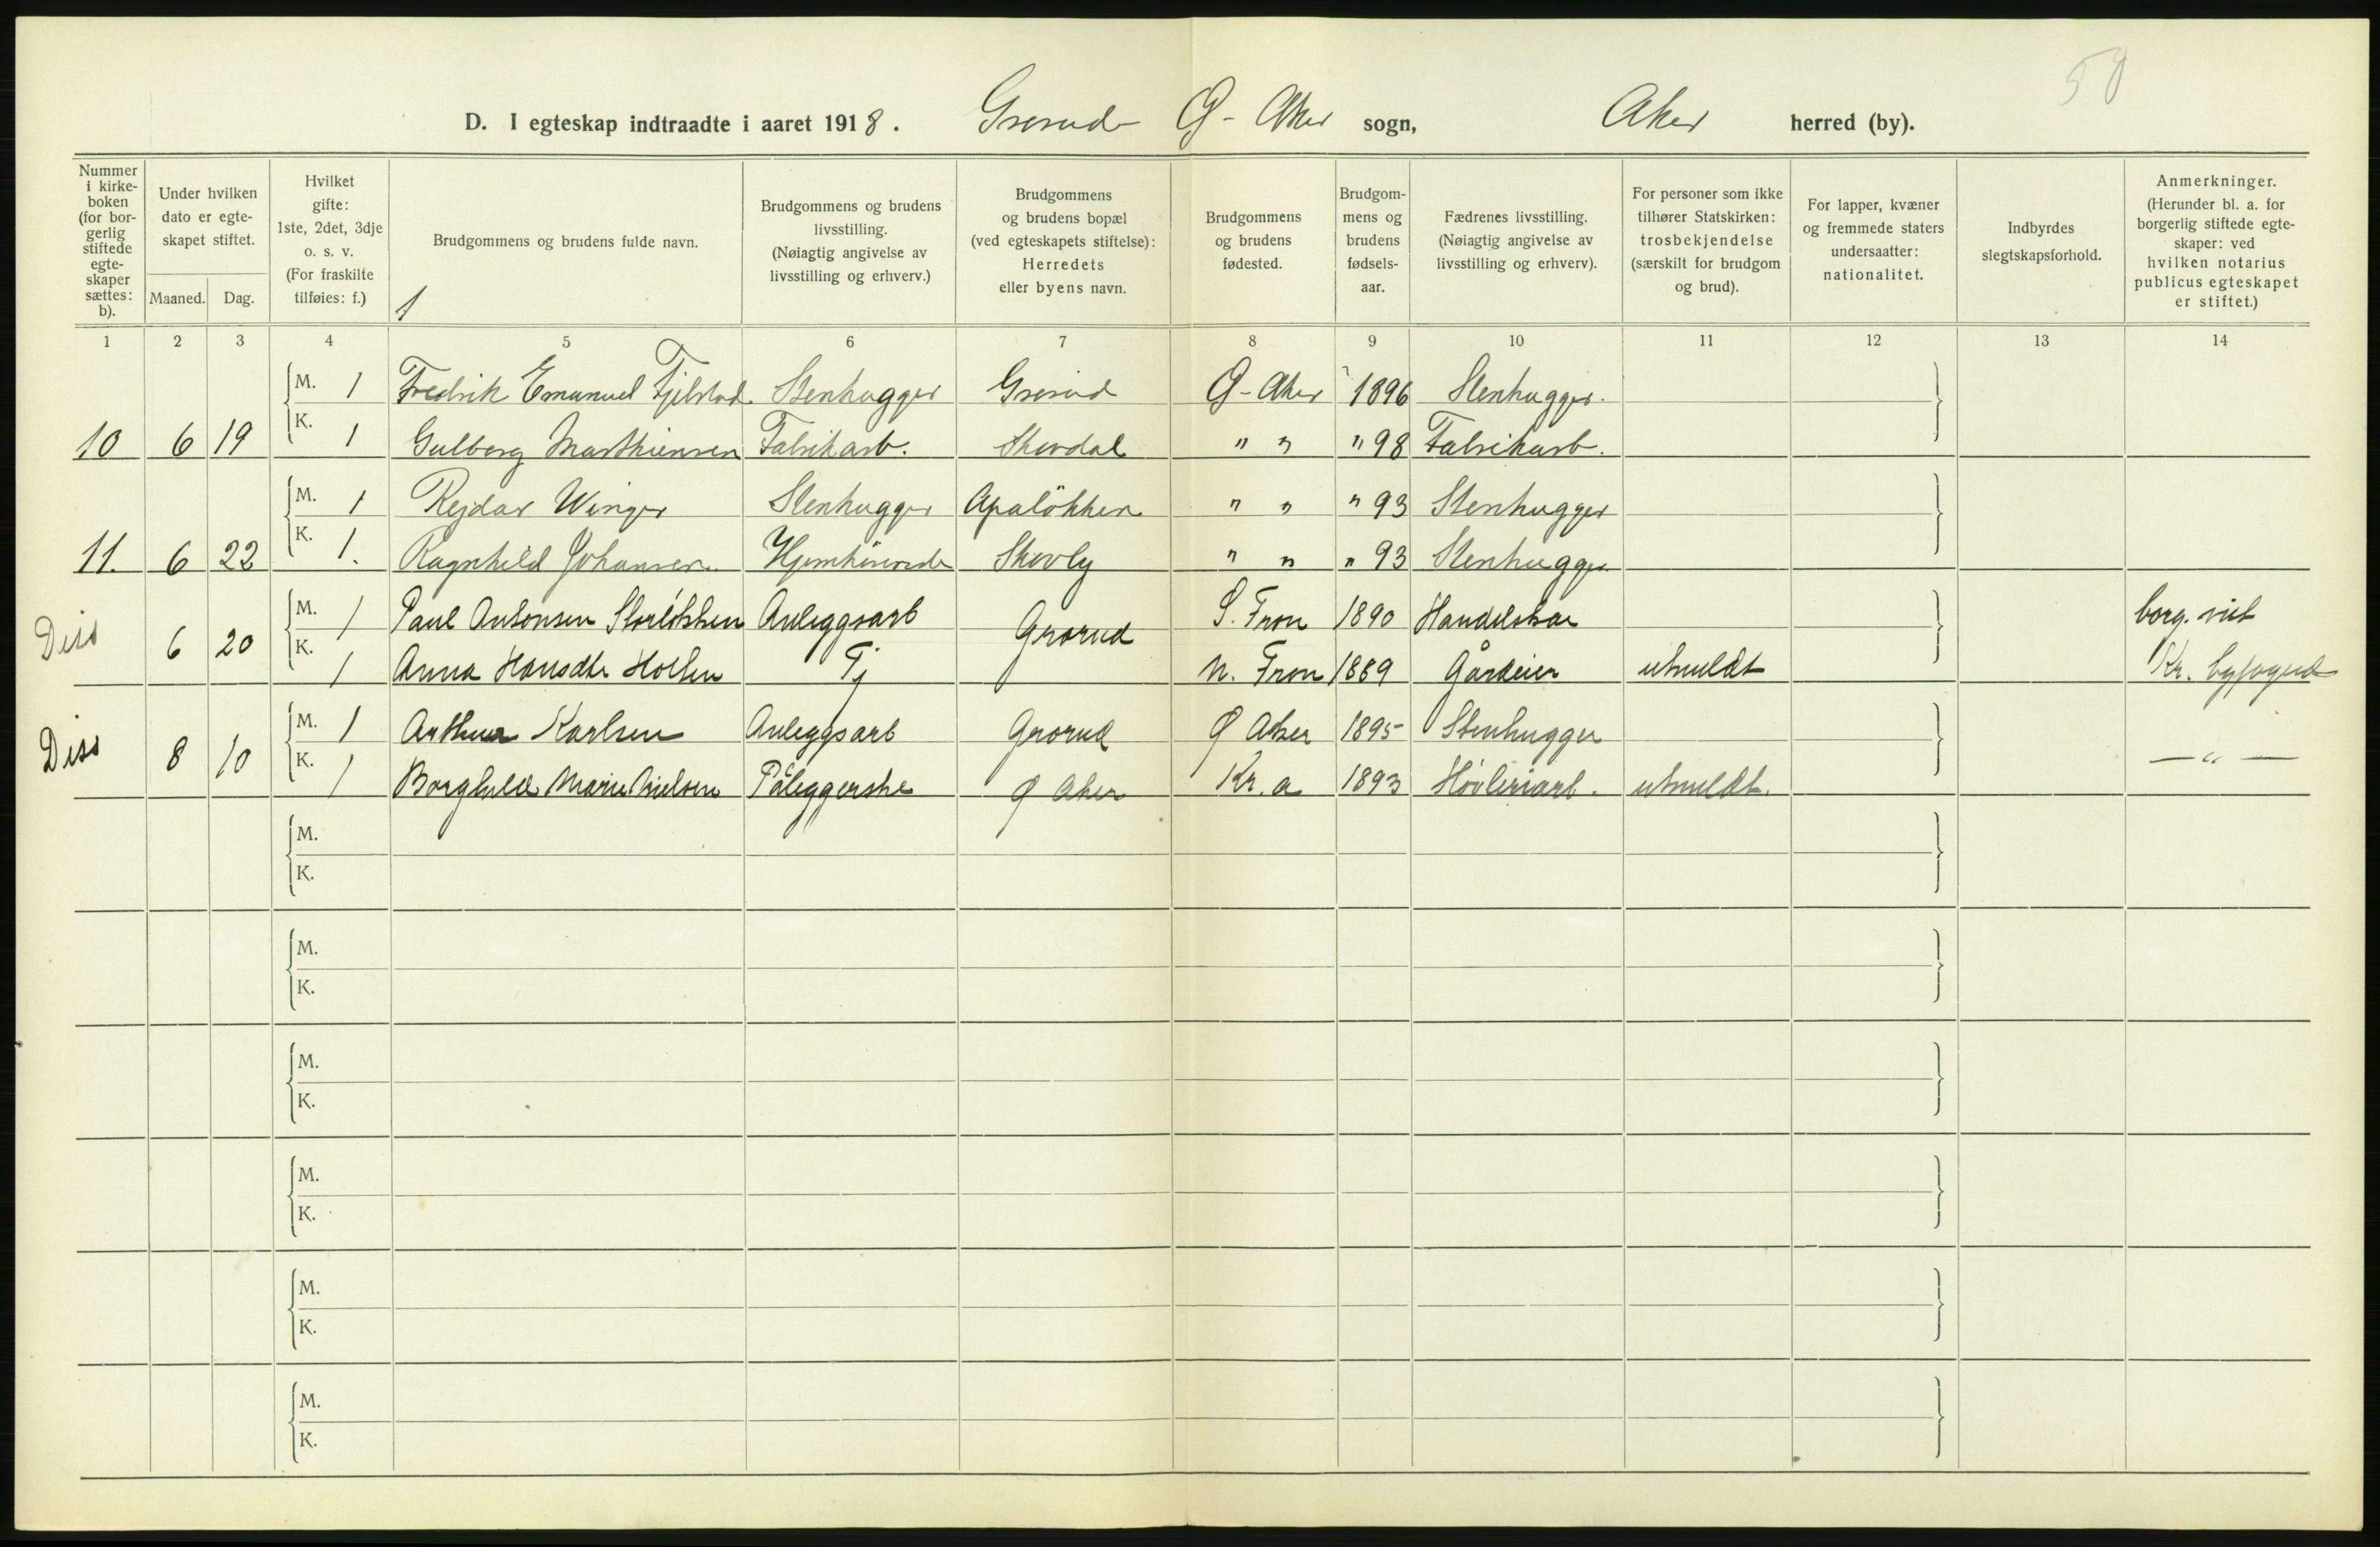 50
D. I egteskap indtraadte i aaret 1918. Grorud Ø-Aker sogn, Aker herred (by).
Nummer i kirke-boken (for bor-gerlig stiftede egte-skaper sættes: b).
Under hvilken dato er egte-skapet stiftet.
Maaned. Dag.
Hvilket gifte: 1ste, 2det, 3dje o. s. v. (For fraskilte tilføies: f.)
Brudgommens og brudens fulde navn.
Brudgommens og brudens livsstilling. (Nøiagtig angivelse av livsstilling og erhverv.)
Brudgommens og brudens bopæl (ved egteskapets stiftelse): Herredets eller byens navn.
Brudgommens og brudens fødested.
Brudgom-mens og brudens fødsels-aar.
Fædrenes livsstilling. (Nøiagtig angivelse av livsstilling og erhverv).
For personer som ikke tilhører Statskirken: trosbekjendelse (særskilt for brudgom og brud).
For lapper, kvæner og fremmede staters undersaatter: nationalitet.
Indbyrdes slegtskapsforhold.
Anmerkninger. (Herunder bl. a. for borgerlig stiftede egte-skaper: ved hvilken notarius publicus egteskapet er stiftet.)
1 2 3 4 5 6 7 8 9 10 11 12 13 14
M. 1 Fredrik Emanuel Fjelstad Stenhugger Grorud Ø-Aker 1896 Stenhugger.
10 6 19 K. 1 Gulborg Marthinsen Fabrikarb. Skovdal " " " 98 Fabrikarb.
M. 1 Rejdar Winger Stenhugger Apaløkken " " " 93 Stenhugger
11. 6 22 K. 1. Ragnhild Johansen. Skovly " " " 93 Stenhugger
M. 1 Paul Antonsen Storløkken Anleggsarb S. Fron 1890 Handelskar borg. viet
Diss 6 20 Grorud
K. 1 Anna Hansdtr Holen Tj N. Fron 1889 Gårdeier utmeldt Kr. byfogud
M. 1 Arthur Karlsen Anleggsarb Grorud Ø Aker 1895 Stenhugger
Diss 8 10 — " —
K. 1 Borghild Marie Nielsen Påleggerske Ø Aker Kr. a 1893 Høvleriarb. utmeldt.
M.
K.
M.
K.
M.
K.
M.
K.
M.
K.
M.
K.